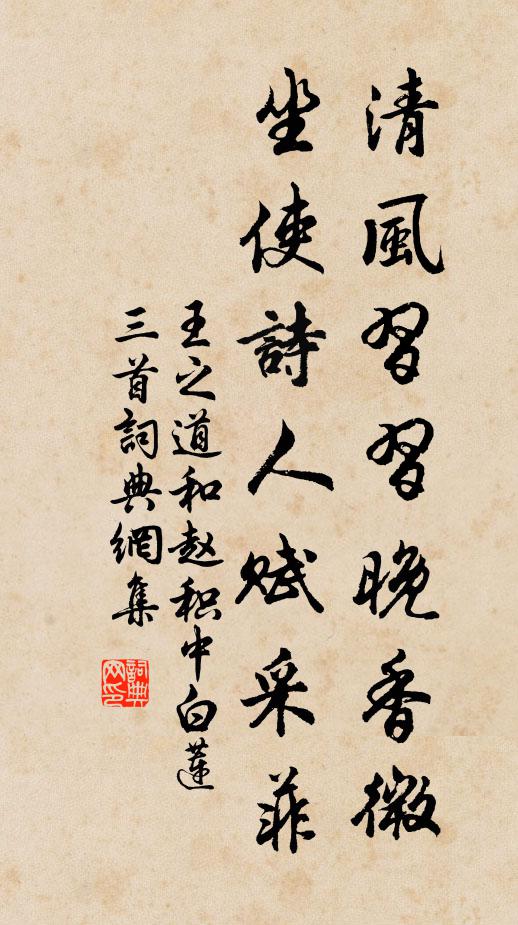 清風習習晚香微
坐使詩人賦采菲
王之道和赵积中白蓮
三首詞典網集
詞典网印